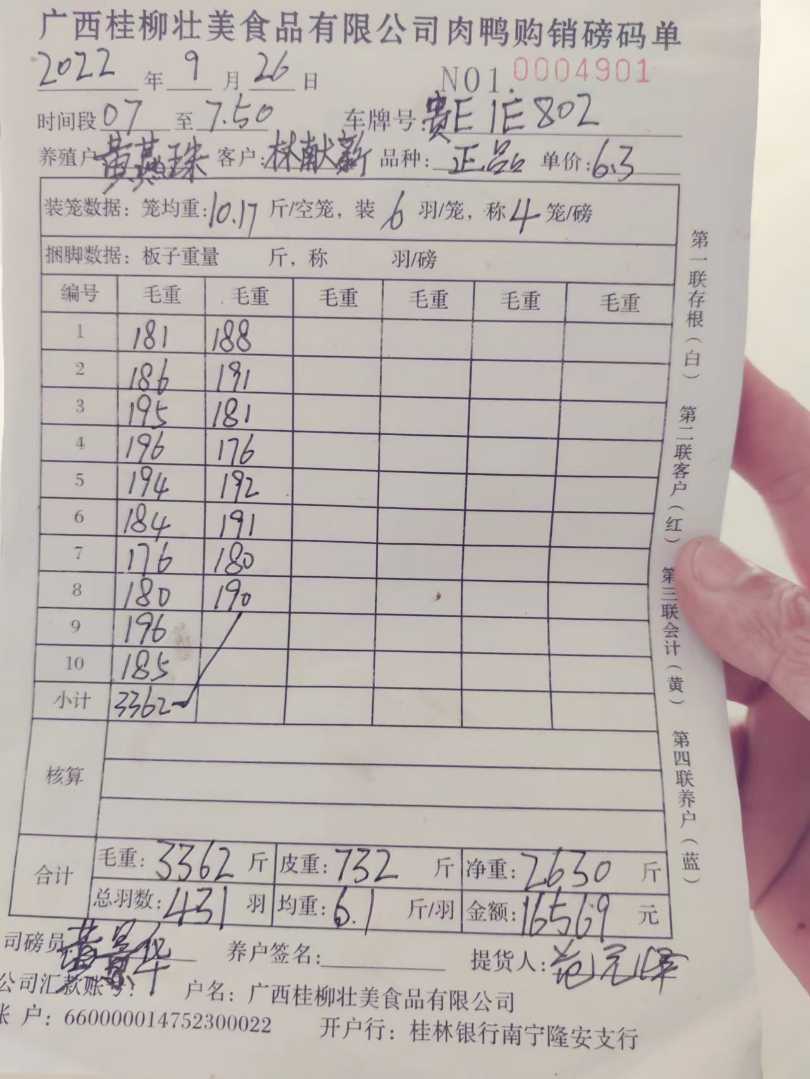 广西桂柳壮美食品有限公司肉鸭购销磅码单
2022年9月26日 NO1.0004901
时间段07至7.50 车牌号:贵E1E802
养殖户黄燕珠 客户:林献新 品种:正品 单价:6.3
装笼数据: 笼均重:10.17斤/空笼, 装6羽/笼, 称4笼/磅
捆脚数据: 板子重量 斤, 称 羽/磅
编号 毛重 毛重 毛重 毛重 毛重 毛重
1 181 188
2 186 191
3 195 181
4 196 176
5 194 192
6 184 191
7 176 180
8 180 190
9 196
10 185
小计 3362
核算
合计 毛重:3362斤 皮重:732斤 净重:2630斤
总羽数:431羽 均重:6.1斤/羽 金额:16569元
司磅员: 养户签名: 提货人:
公司汇款账号: 户名: 广西桂柳壮美食品有限公司
账 户: 660000014752300022 开户行: 桂林银行南宁隆安支行
第一联存根(白) 第二联客户(红) 第三联会计(黄) 第四联养户(蓝)